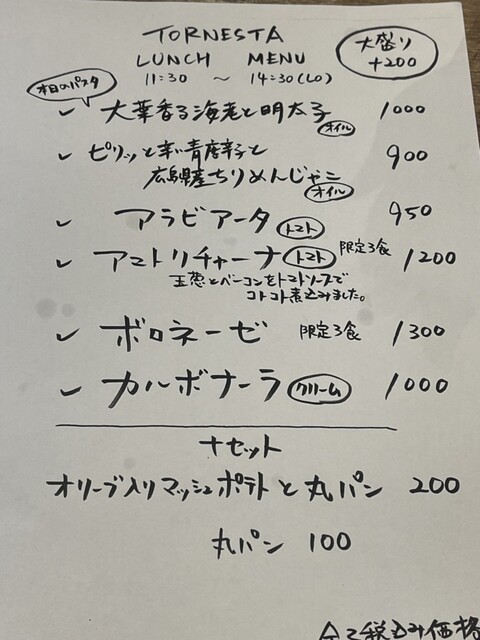 TORNESTA
LUNCH MENU
11:30 ～ 14:30(LO)
大盛り
+200
本日のパスタ
大葉香る海老と明太子 1000
オイル
ピリッと辛い青唐辛子と 900
広島県産ちりめんじゃこ
オイル
アラビアータ トマト 950
アマトリチャーナ トマト 限定3食 1200
玉葱とベーコンをトマトソースで
コトコト煮込みました。
ボロネーゼ 限定3食 1300
カルボナーラ クリーム 1000
+セット
オリーブ入りマッシュポテトと丸パン 200
丸パン 100
全て税込み価格